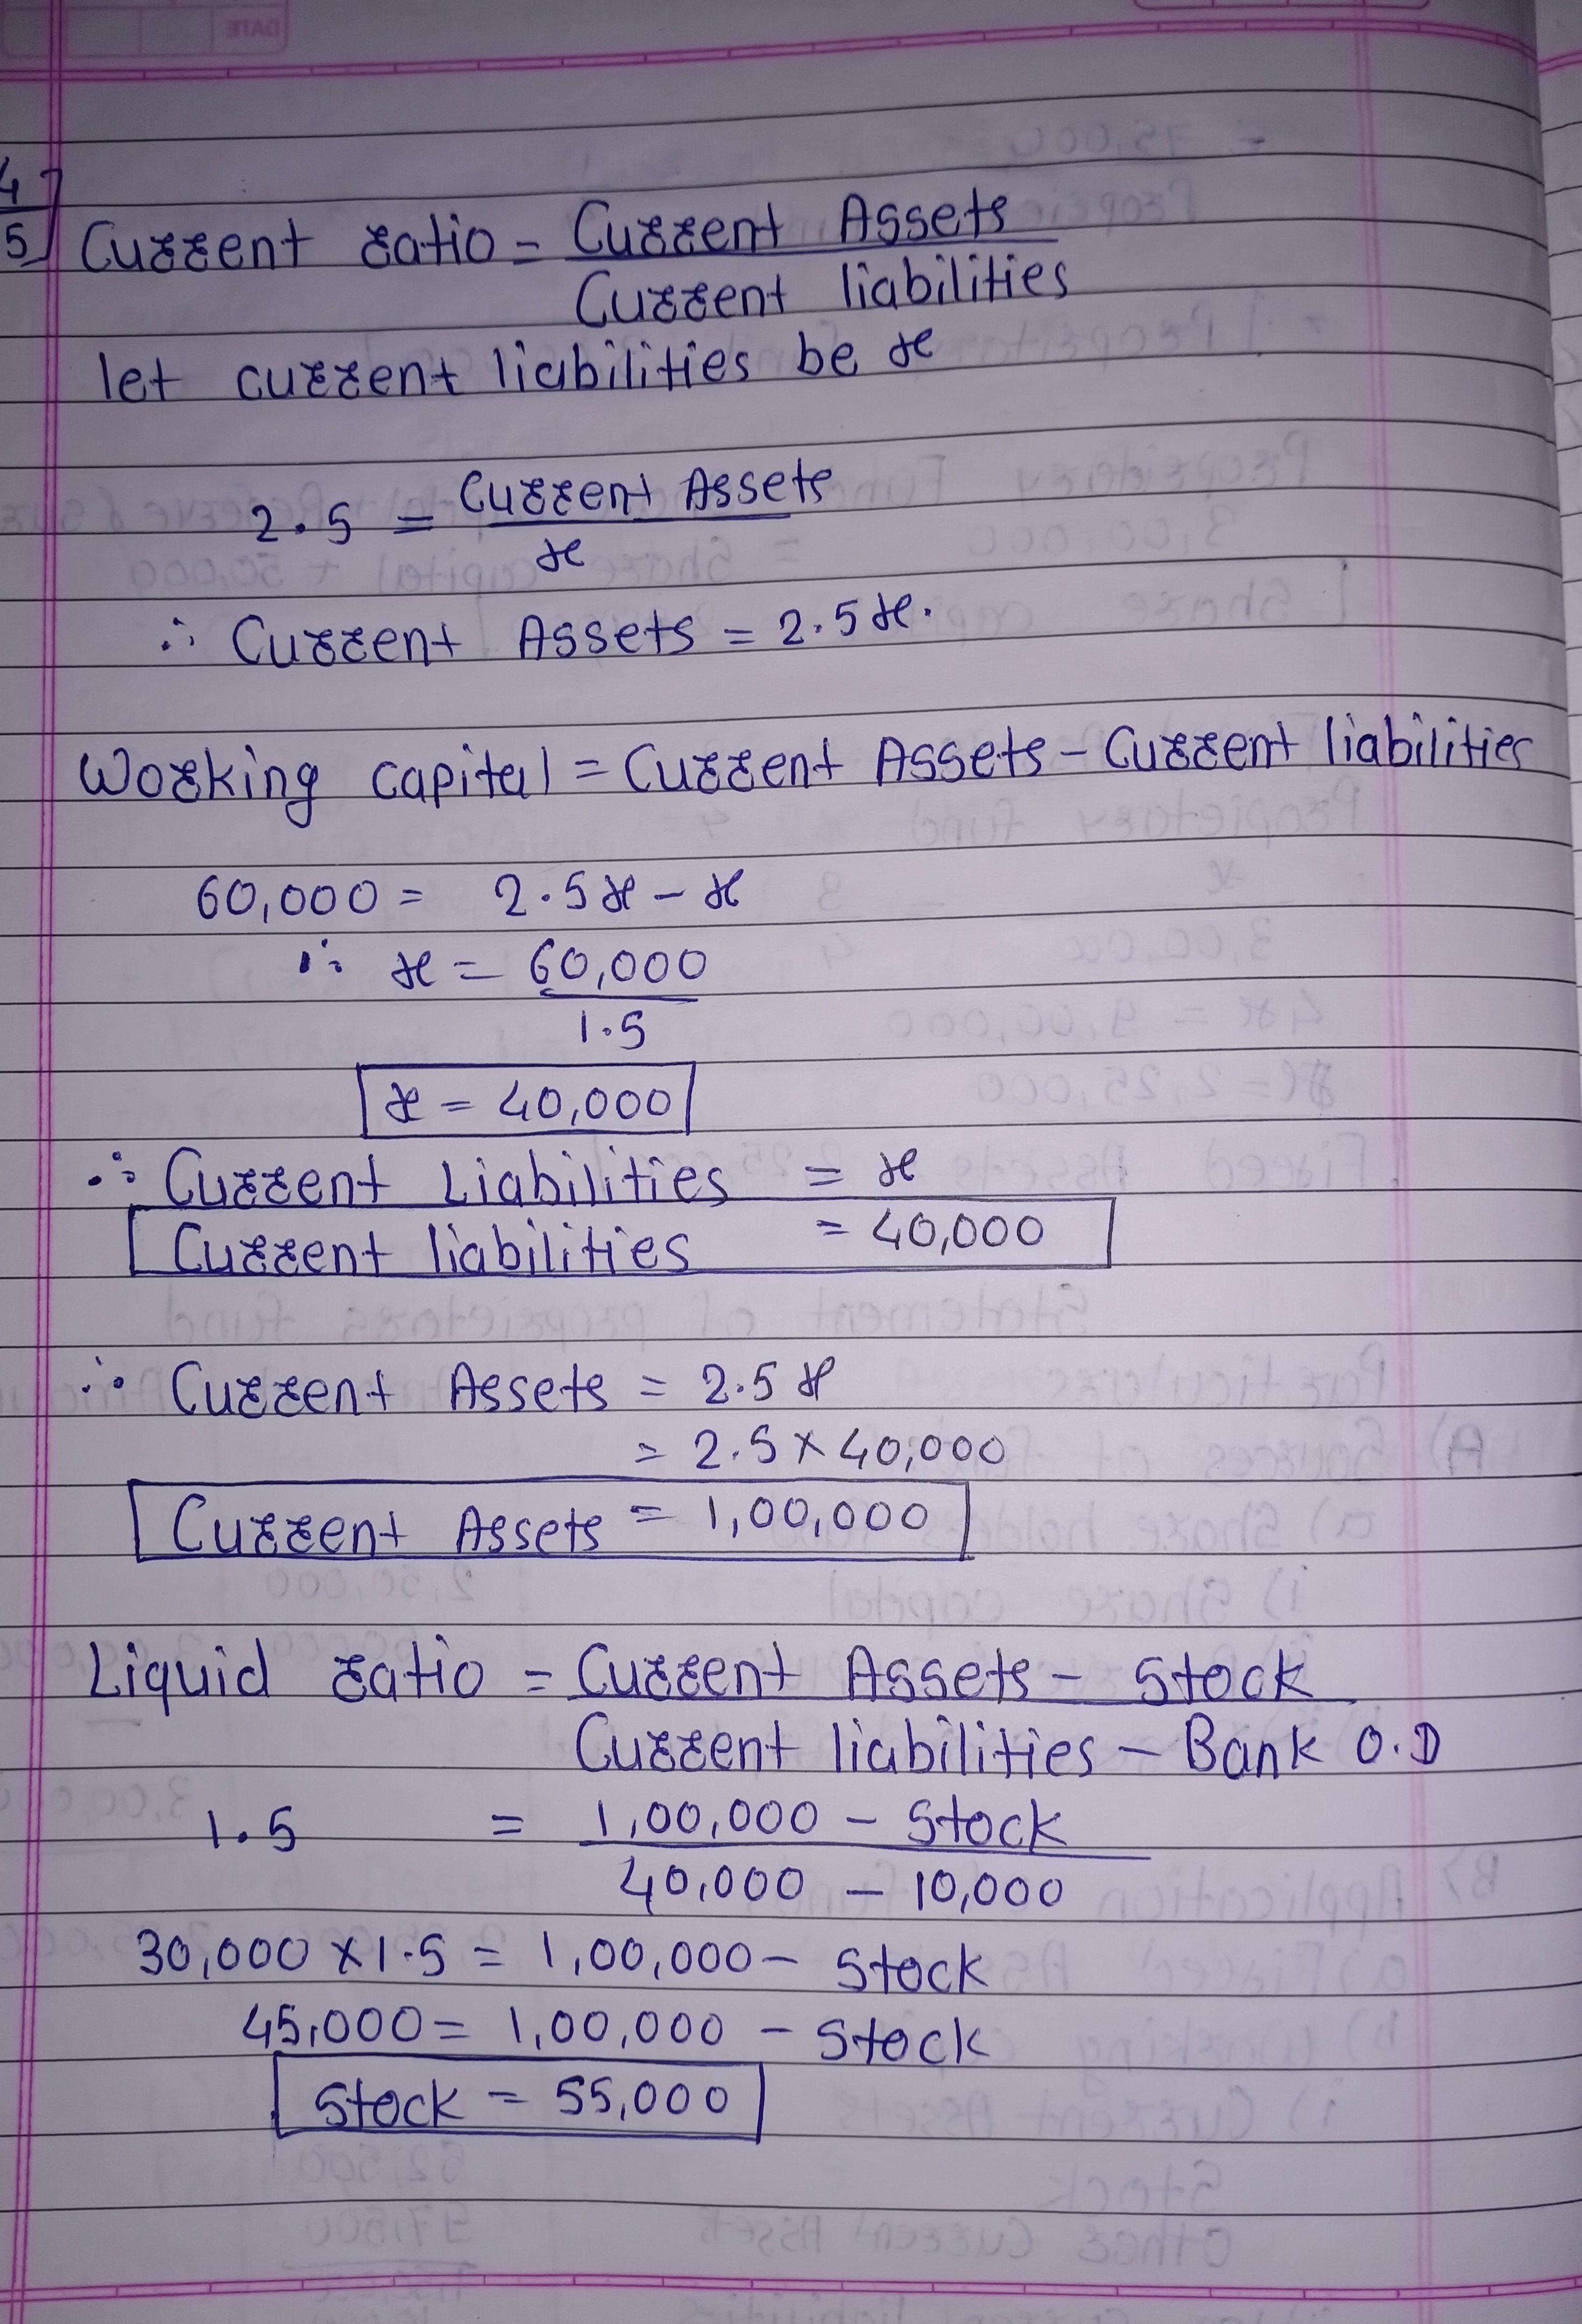 DATE
4
5]
Current ratio = Current Assets
Current liabilities
let current liabilities be x
2.5 = Current Assets
x
∴ Current Assets = 2.5x.
Working capital = Current Assets - Current liabilities
60,000 = 2.5x - x
∴ x = 60,000
1.5
x = 40,000
∴ Current Liabilities = x
Current liabilities = 40,000
∴ Current Assets = 2.5x
= 2.5 × 40,000
Current Assets = 1,00,000
Liquid ratio = Current Assets - Stock
Current liabilities - Bank O.D
1.5 = 1,00,000 - Stock
40,000 - 10,000
30,000 × 1.5 = 1,00,000 - Stock
45,000 = 1,00,000 - Stock
Stock = 55,000